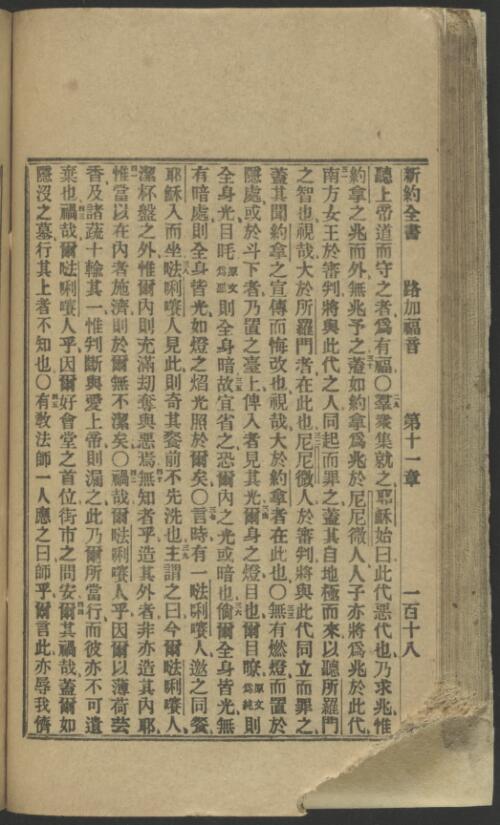 新約全書 路加福音 第十一章 一百十八
聽上帝道而守之者、爲有福、○二九羣衆集就之、耶穌始曰、此代惡代也、乃求兆、惟
約拿之兆而外、無兆予之、三十蓋如約拿爲兆於尼尼微人、人子亦將爲兆於此代、
南方女王於審判將與此代之人同起而罪之、蓋其自地極而來、以聽所羅門
之智也、視哉、大於所羅門者在此也、三二尼尼微人於審判將與此代同立而罪之、
蓋其聞約拿之宣傳而悔改也、視哉、大於約拿者在此也、○三三無有燃燈而置於
隱處、或於斗下者、乃置之臺上、俾入者見其光、三四爾身之燈目也、爾目瞭、原文爲純則
全身光、目眊、原文爲惡則全身暗、三五故宜省之、恐爾內之光或暗也、三六倘爾全身皆光、無
有暗處、則全身皆光、如燈之熖光照於爾矣、○三七言時、有一㗲唎㘔人邀之同餐、
耶穌入而坐、三八㗲唎㘔人見此則奇其餐前不先洗也、三九主謂之曰、今爾㗲唎㘔人、
潔杯盤之外、惟爾內則充滿刧奪與惡焉、四十無知者乎、造其外者、非亦造其內耶、
四一惟當以在內者施濟、則於爾無不潔矣、○四二禍哉、爾㗲唎㘔人乎、因爾以薄荷芸
香及諸蔬、十輸其一、惟判斷與愛上帝則漏之、此乃爾所當行、而彼亦不可遺
棄也、四三禍哉、爾㗲唎㘔人乎、因爾好會堂之首位、街市之問安、四四爾其禍哉、蓋爾如
隱沒之墓、行其上者不知也、○四五有教法師一人應之曰、師乎、爾言此亦辱我儕